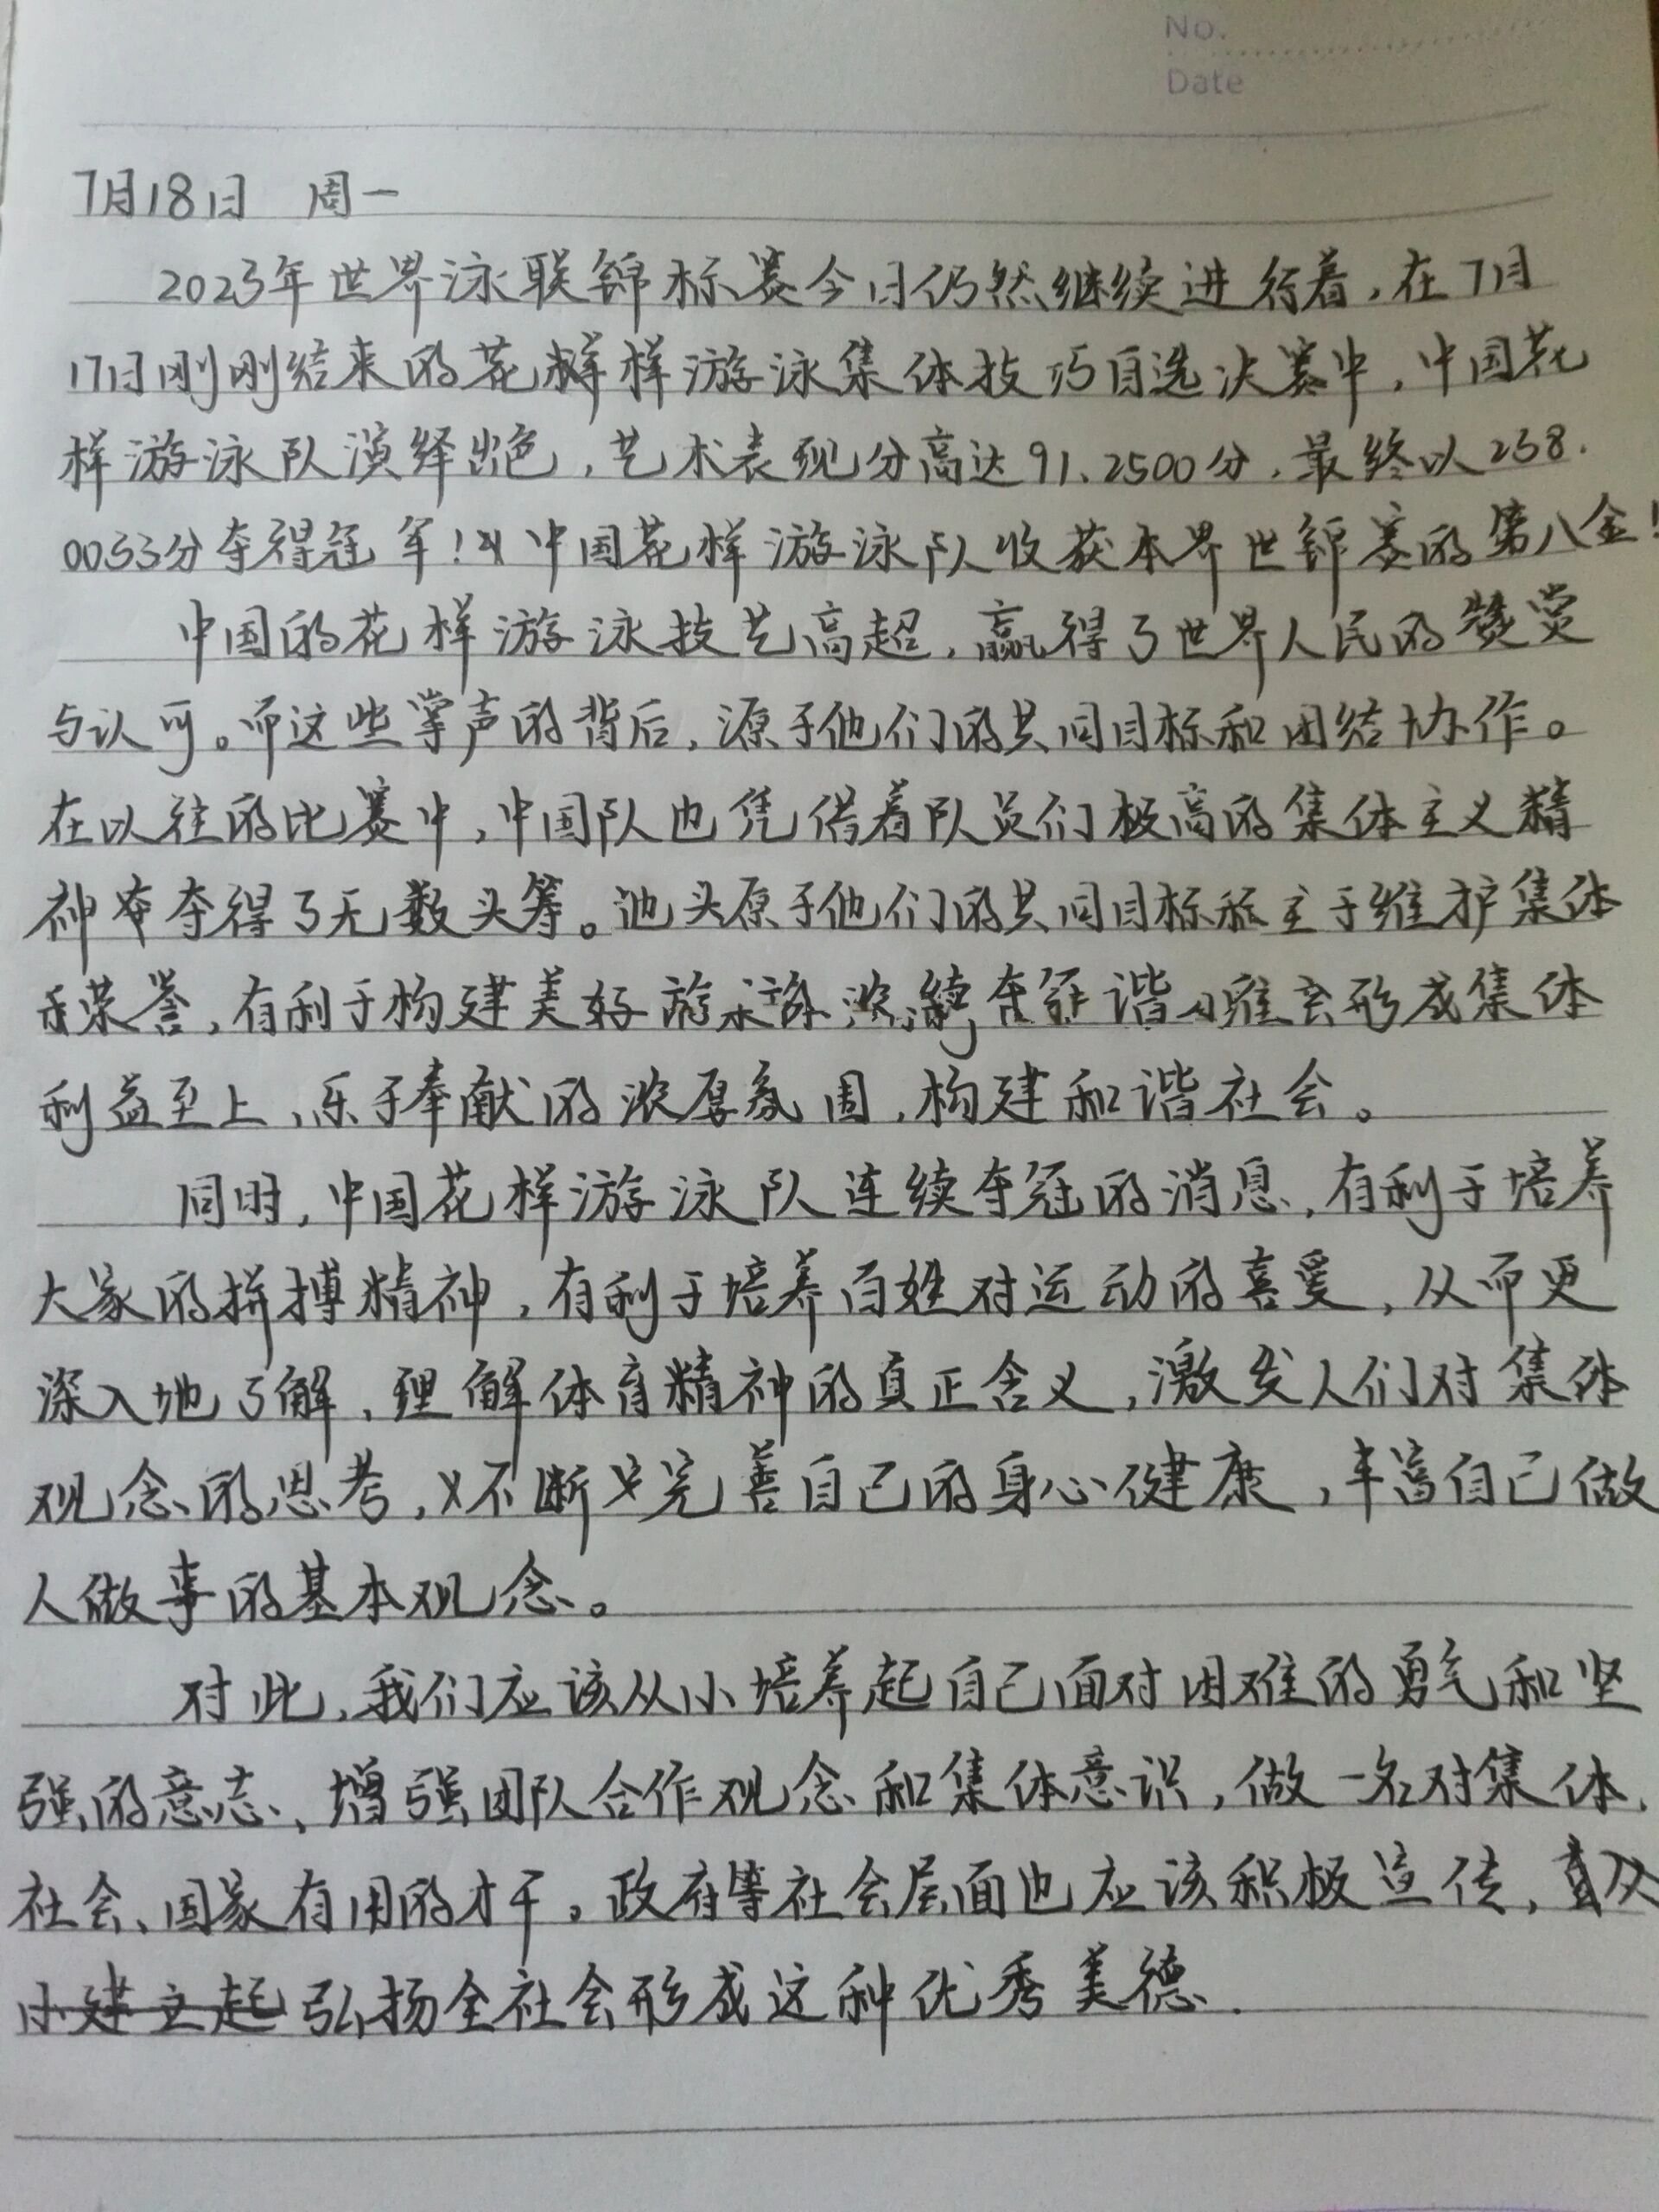 No.
Date
7月18日 周一
2023年世界泳联锦标赛今日仍然继续进行着,在7月
17日刚刚结束的花样游泳集体技巧自选决赛中,中国花
样游泳队演绎出色,艺术表现分高达91.2500分,最终以238.
0033分夺得冠军!中国花样游泳队收获本界世锦赛的第八金!
中国的花样游泳技艺高超,赢得了世界人民的赞赏
与认可。而这些掌声的背后,源于他们的共同目标和团结协作。
在以往的比赛中,中国队也凭借着队员们极高的集体主义精
神夺得了无数头筹。他们的共同目标在于维护集体
荣誉,有利于构建美好 形成集体
利益至上、乐于奉献的浓厚氛围,构建和谐社会。
同时,中国花样游泳队连续夺冠的消息,有利于培养
大家的拼搏精神,有利于培养百姓对运动的喜爱,从而更
深入地了解、理解体育精神的真正含义,激发人们对集体
观念的思考,不断完善自己的身心健康,丰富自己做
人做事的基本观念。
对此,我们应该从小培养起自己面对困难的勇气和坚
强的意志、增强团队合作观念和集体意识,做一名对集体、
社会、国家有用的才干。政府等社会层面也应该积极宣传,
弘扬全社会形成这种优秀美德.